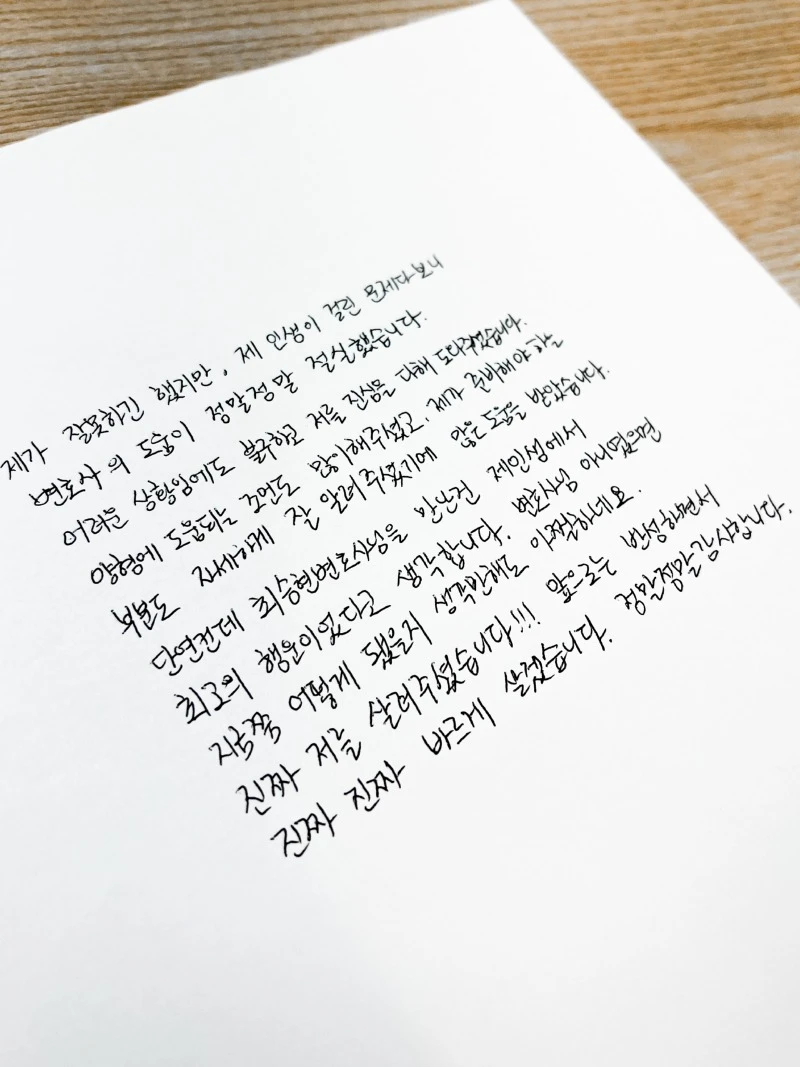 제가 잘못하긴 했지만, 제 인생이 걸린 문제다보니
변호사의 도움이 정말정말 절실했습니다.
어려운 상황임에도 불구하고 저를 진심을 다해 도와주셨습니다.
양형에 도움되는 조언도 많이해주셨고, 제가 준비해야 하는
부분도 자세하게 잘 알려주셨기에 많은 도움을 받았습니다.
단연컨데 최승현변호사님을 만난건 제인생에서
최고의 행운이었다고 생각합니다. 변호사님 아니었으면
지금쯤 어떻게 됐을지 생각만해도 아찔하네요.
진짜 저를 살려주셨습니다!!! 앞으로는 반성하면서
진짜 진짜 바르게 살겠습니다. 정말정말감사합니다.